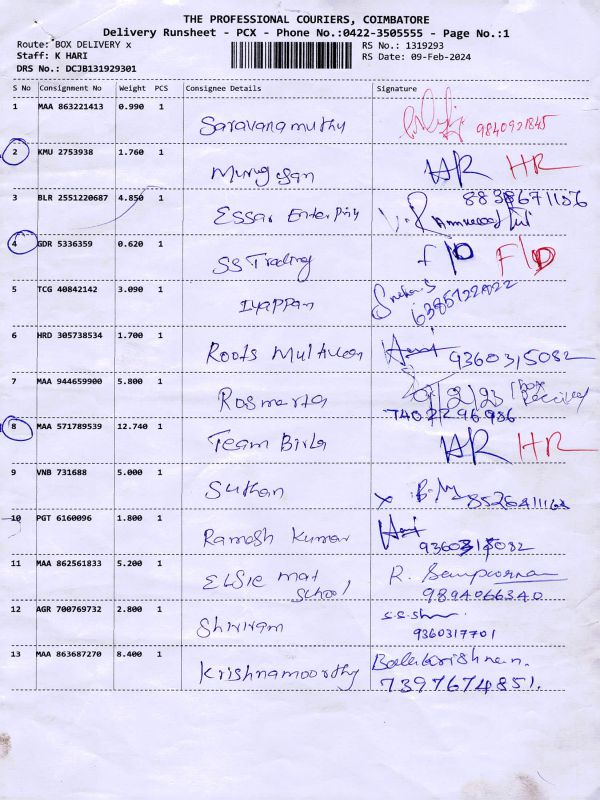 THE PROFESSIONAL COURIERS, COIMBATORE
Delivery Runsheet - PCX - Phone No.:0422-3505555 - Page No.:1
Route: BOX DELIVERY x
Staff: K HARI
DRS No.: DCJB131929301
RS No.: 1319293
RS Date: 09-Feb-2024
S No Consignment No Weight PCS Consignee Details Signature
1 MAA 863221413 0.990 1 Saravanamuthy 9840921845
2 KMU 2753938 1.760 1 Murugesan HR HR
3 BLR 2551220687 4.850 1 Essar Enterpriy 8838671156
4 GDR 5336359 0.620 1 SS Trading F/D F/D
5 TCG 40842142 3.090 1 Iyappan
6 HRD 305738534 1.700 1 Roots Multiclean Hari 9360315082
7 MAA 944659900 5.800 1 Rosmerta 1 box Received
7402296986
8 MAA 571789539 12.740 1 Team Birla HR HR
9 VNB 731688 5.000 1 Suthan
10 PGT 6160096 1.800 1 Ramesh Kumar Hari
9360315082
11 MAA 862561833 5.200 1 ELSie mat School R. Sampoorna
9894066340
12 AGR 700769732 2.800 1 Shriram
9360317701
13 MAA 863687270 8.400 1 Krishnamoorthy Balakrishnan.
7397674851.